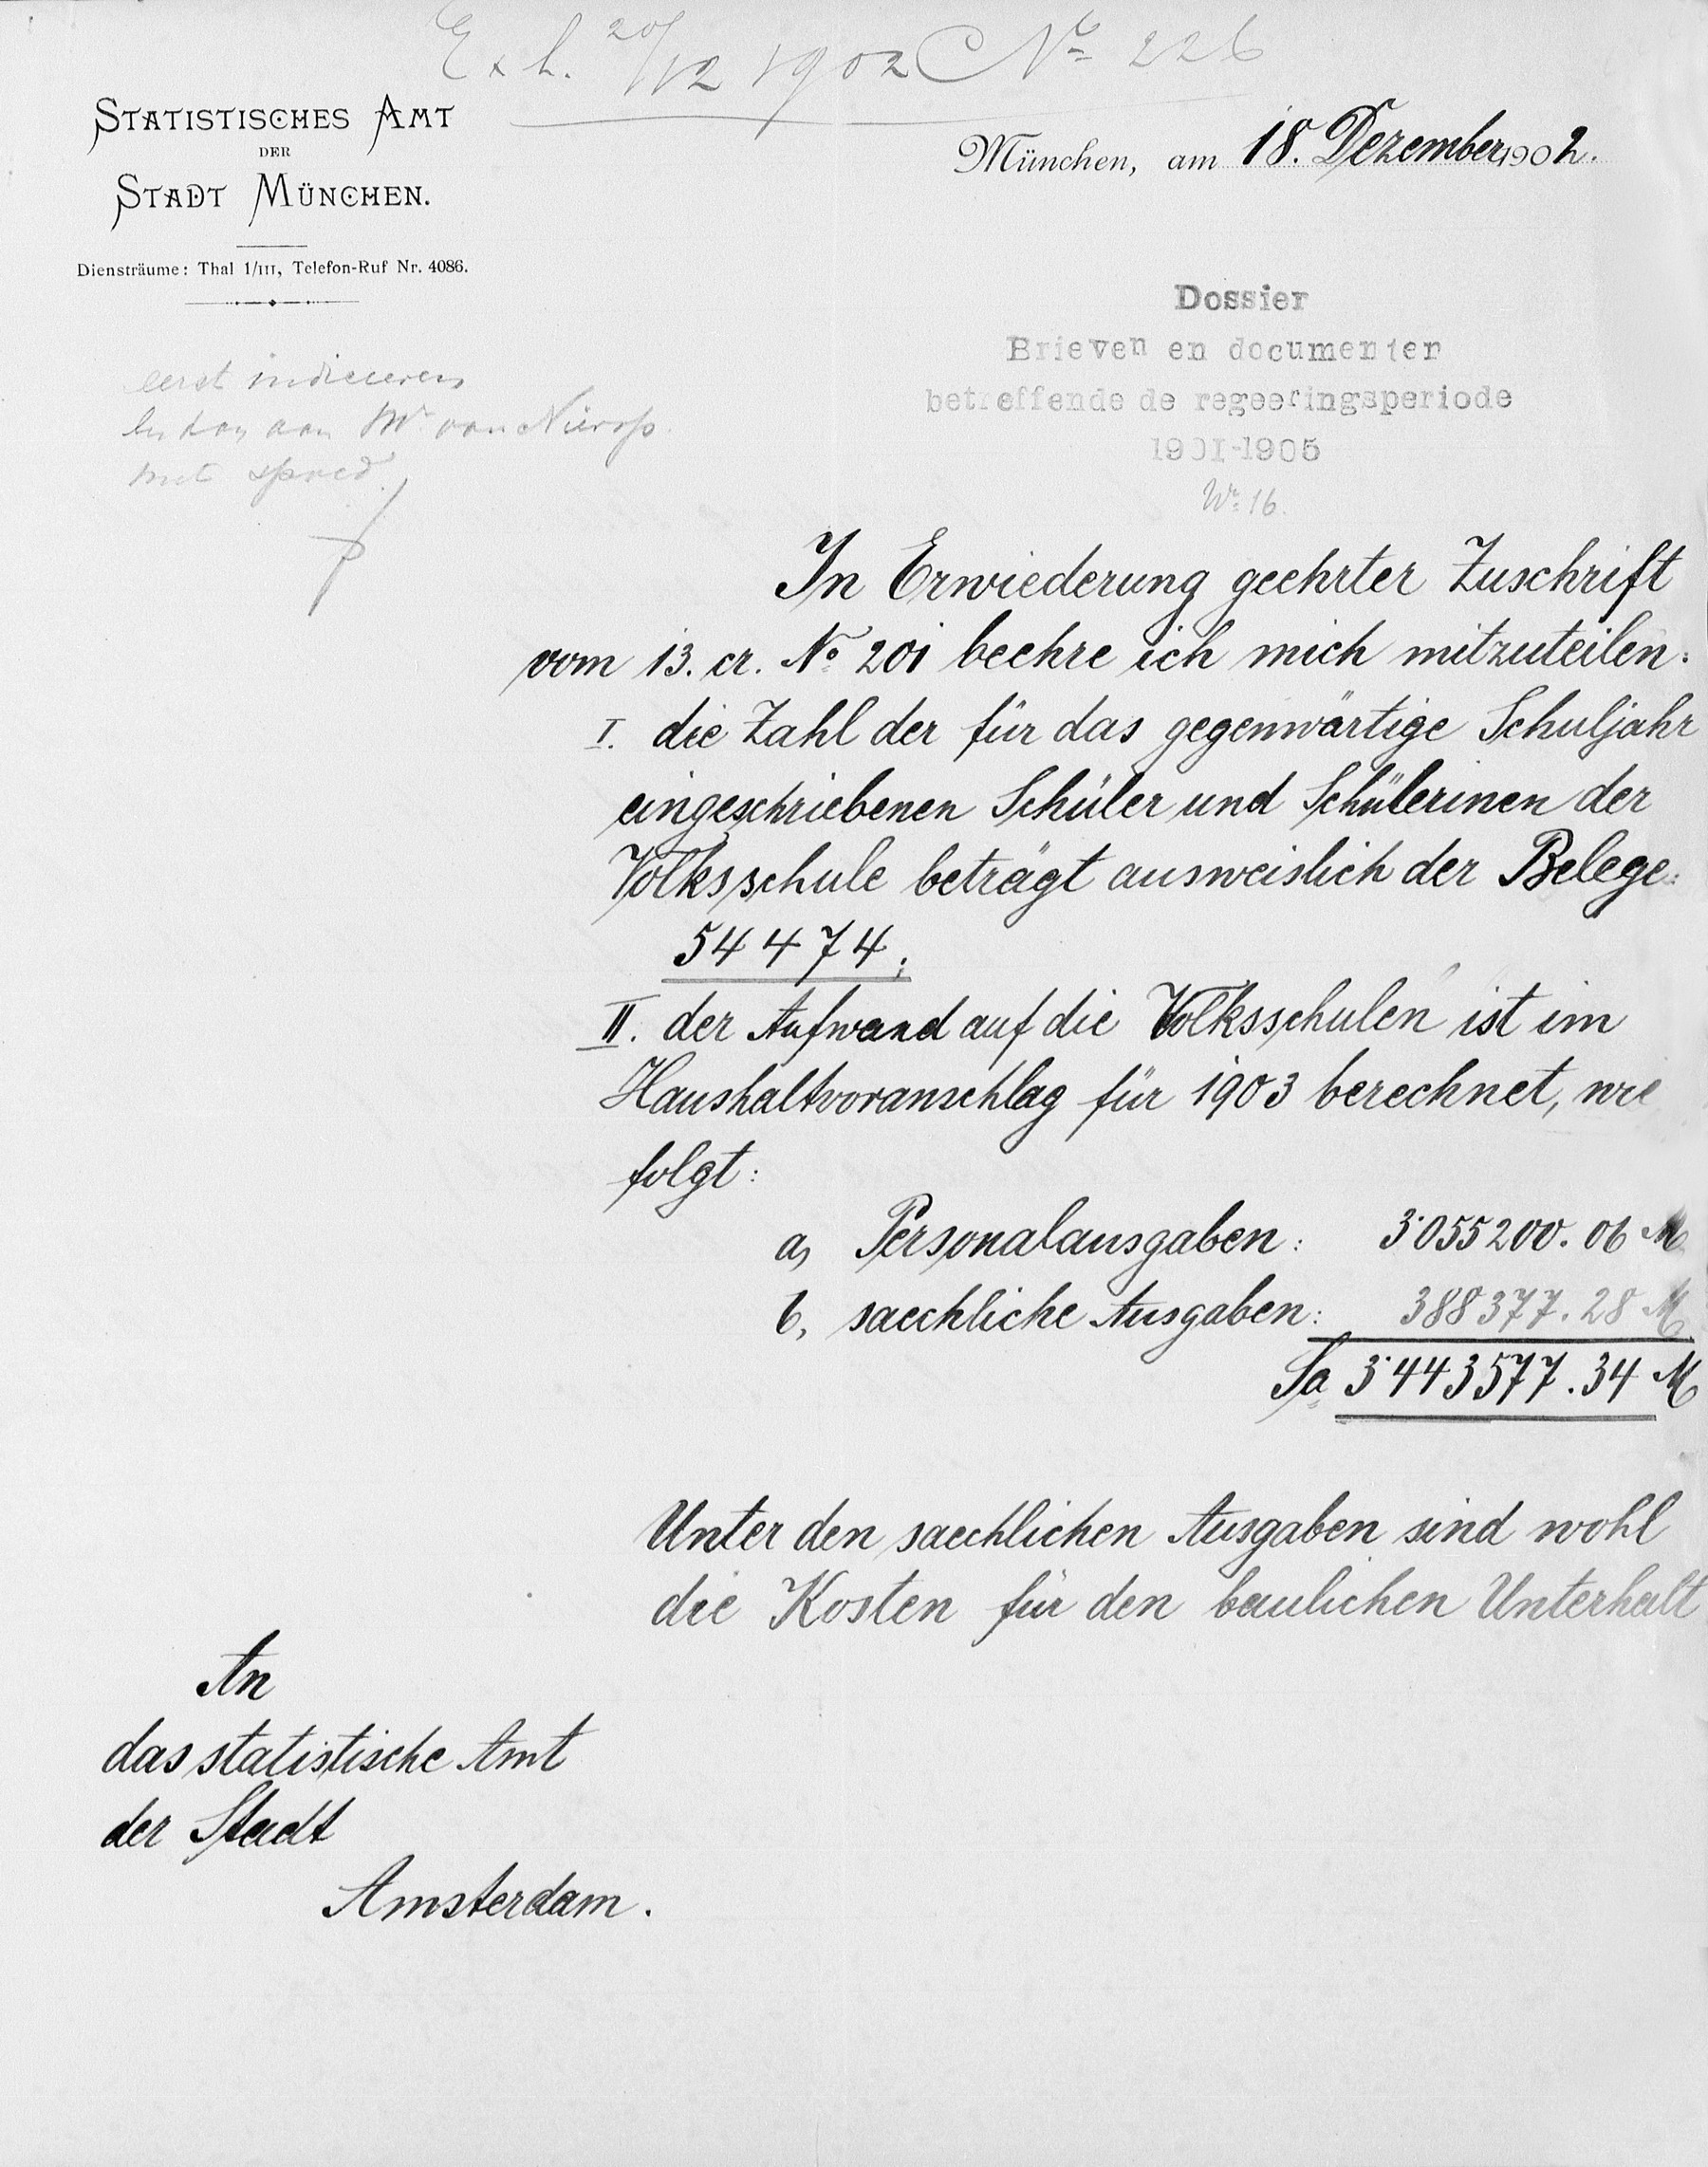 Exh. 20/12 1902 No 226
STATISTISCHES AMT
DER
STADT MÜNCHEN.
Diensträume: Thal 1/III, Telefon-Ruf Nr. 4086.
München, am 18. Dezember 1902.
Dossier
Brieven en documenten
betreffende de regeeringsperiode
1901-1905
No 16.
eerst indiceeren
aan Mr van Nierop
met spoed
In Erwiederung geehrter Zuschrift
vom 13. cr. No 201 beehre ich mich mitzuteilen:
I. die Zahl der für das gegenwärtige Schuljahr
eingeschriebenen Schüler und Schülerinen der
Volksschule beträgt ausweislich der Belege:
54474;
II. der Aufwand auf die Volksschulen ist im
Haushaltvoranschlag für 1903 berechnet, wie
folgt:
a, Personalausgaben: 3'055200.06 M
b, saechliche Ausgaben: 388377.28 M
Sa 3'443577.34 M
Unter den saechlichen Ausgaben sind wohl
die Kosten für den baulichen Unterhalt
An
das statistische Amt
der Stadt
Amsterdam.